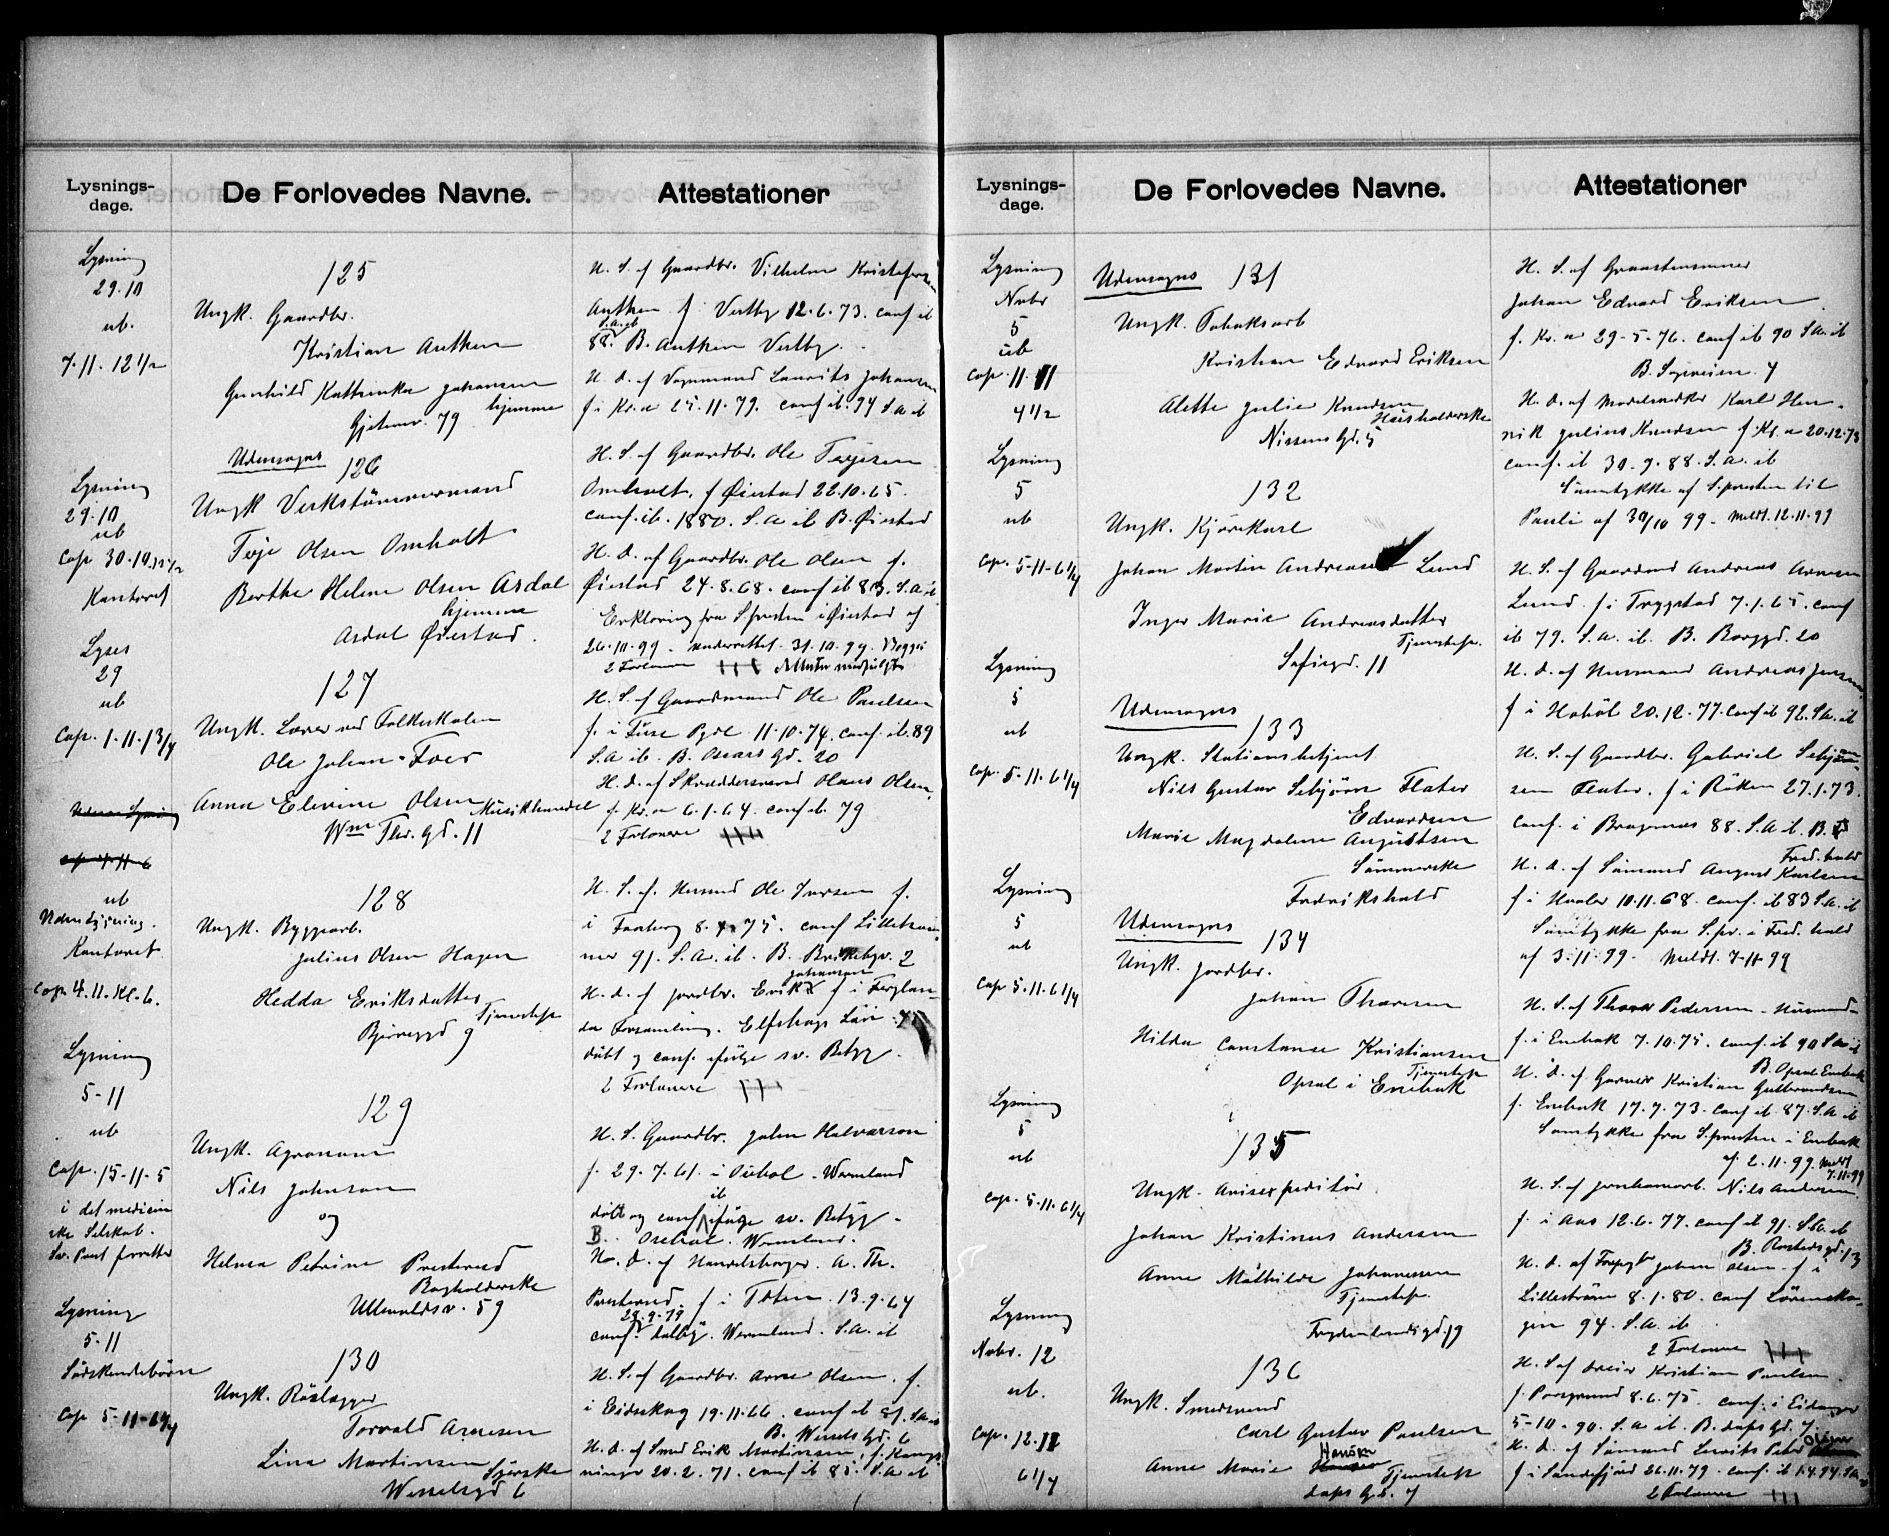 Lysnings-
dage.
De Forlovedes Navne.
Attestationer
Lysning
29.10
ub.
7.11. 12 1/2
125
Ungk. Gaardbr.
Kristian Anthen
Gunhild Kathinka Johansen
hjemme
79
H. S. af Gaardbr. Vilhelm
Anthen f. Vestby 12.6.73. conf ib
88. B. Anthen Vestby.
H. D. af Vognmand Laurits Johansen
f i Kr.a 25.11.79. conf ib. 94 S.a ib
Lysning
29.10
ub
Cop. 30.10
Kontoret
Udensogns
126
Ungk
Terje Olsen Omholt
Berthe Helene Olsen Asdal
hjemme
Asdal Øiestad.
H. S. af Gaardbr. Ole Terjesen
Omholt. f Øiestad 22.10.65.
conf. ib. 1880. S.a ib B. Øiestad
H. D. af Gaardbr. Ole Olsen f.
Øiestad 24.8.68. conf ib 83. S.a ib
Erklæring fra S.presten i Øiestad af
26.10.99 - underrettet. 31.10.99.
2 Forlovere
Lyses
29
ub
Cop. 1.11.
127
Ungk. Lærer ved Folkeskolen
Ole Johan
Anna Elevine Olsen
Musikhandel
Wm Thr. Gd. 11
H. S. af Gaardmand Ole Paulsen
f. i 11.10.74. conf. ib. 89
S.a ib. B. Gd. 20
H. D. af Skræddersvend Olaus Olsen.
f. Kr.a 6.1.64. conf ib. 79
2 Forlovere
ub
Uden Lysning.
Kontoret
Cop. 4.11. Kl. 6.
128
Ungk. Byggearb.
Julius Olsen Hagen
Hedda Eriksdatter
Tjenestep
9
H. S. af. Husmd Ole Iversen f.
i Faaberg 8. 75. conf Lilleham-
mer 91. S.a. ib. B. 2
Johansen
H. D. af Jordbr. Erik f i Færglan-
da Forsamling. Elfsborgs Län.
døbt og conf. ifølge sv. Betyg.
2 Forlovere
Lysning
5-11
ub
Cop. 15-11-5
i det medicin
ske Selskab.
Sv. Past forretter
129
Ungk. Agronom
Nils Johnson
og
Helma Petrine Presterud
Bogholderske
Ullevaldsv. 59
H. S. Gaardbr. John Halvarson
f. 29.7.61. i - Wermland
døbt og conf ib ifølge sv. Betyg -
B. Wermland.
H. D. af Handelsborger. A. Th.
Presterud. f i Toten. 13.9.64
28.9.79
conf. Dalby. Wermland. S.a. ib
Lysning
5-11
Sødskendebørn
Cop 5-11-
130
Ungk. Rørlægger
Torvald Arnesen
Line Martinsen
Wesselsgd 6
H. S. af Gaardbr. Arne Olsen. f.
i Eidsskog 19.11.66. conf ib 81. S.a ib
B. Wessels Gd. 6
H. D. af Smed Erik Martinsen, f. Kongs
vinger 20.2.71. conf ib 85. S.a ib
Lysnings-
dage.
De Forlovedes Navne.
Attestationer
Lysning
Nvbr
5
ub
Cop. 11.11
4 1/2
Udensogns
131
Ungk. Tobaksarb
Kristian Edvard Eriksen
Alette Julie Knudsen
Husholderske
Nissens Gd. 5
H. S. af
Johan Edvard Eriksen
f. Kr. a 29-5-76. conf ib 90 S.a. ib
H. D. af Karl Hen-
rik Julius Knudsen f. Kr. a 20.12.73
conf. ib 30.9.88. S.a. ib
Samtykke af S.presten til
Pauli af 30/10 99 - Meldt. 12-11-99
Lysning
5
ub
Cop. 5-11-6 1/4
132
Ungk. Kjørekarl
Johan Martin Andreasen Lund
Inger Marie Andreasdatter
Tjenestep.
Sofiegd. 11
H. S. af Gaardmd Andreas
Lund. f i Trygstad 7.1.65. conf
ib 79. S.a. ib. B. Borggd. 20
H. D. af Husmand Andreas Jensen
f i Hobøl 20.12.77. conf ib 92. S.a. ib
Lysning
5
ub
Cop. 5-11.6 1/4
Udensogns
133
Ungk. Stationsbetjent
Nils Gustav Sebjørn Flater
Edvardsen
Marie Magdalene Augustsen
Sømmerske
Fredrikshald
H. S. af Gaardbr. Gabriel Sebjørn-
sen Flater. f i Røken 27.1.73.
Conf. i Bragernes 88. S.a ib. B.
Fred.hald
H. D. af Sømand August Karlsen
f i Hvaler 10.11.68. conf. ib 83 S.a. ib
Samtykke fra S.pr. i Fred.hald
af 3.11.99. Meldt. 7-11-99
Lysning
5
ub
Cop 5.11.6 1/4
Udensogns
134
Ungk. Jordbr.
Johan Thoresen
Hilda Constanse Kristiansen
Tjenestep
Opsal i Enebak
H. S. af Thore Pedersen - Husmand -
f. i Enebak 7.10.75. conf. ib 90 S.a ib
B. Opsal Enebak
H. D. af Garver Kristian Gulbrandsen
f. Enebak 17.7.73. conf ib 87. S.a ib
Samtykke fra S.presten i Enebak
af. 2.11.99. Meldt
7.11.99
Lysning
5
ub
Cop. 5-11.6 1/4
135
Ungk. Avisexpeditør
Johan Kristinus Andersen
Anne Mathilde Johannesen
Tjenestep.
Frydenlundsgd. 19
H. S. af Jernbanearb. Nils Andersen.
f. i Aas 12.6.77. conf ib 91. S.a. ib
B. Rostedsgd. 13
H. D. af Johan Olsen. f i
Lillestrøm 8.1.80. conf Lørensko-
gen 94. S.a. ib
2 Forlovere
Lysning
Nvbr. 12
ub.
Cop. 12.12
6 1/4
136
Ungk. Smedsvend
Carl Gustav Paulsen
Anne Marie Hansen
Tjenestep
Daps Gd. 7
H. S. af Dreier Kristian Paulsen.
f. Porsgrund 8.6.75. conf. i Eidanger
5-10-90. S.a ib. B. Daps Gd. 7.
H. D. af Sømand Lauritz Peter
f i Sandefjord 26.11.79. conf. ib 1.4.94. S.a
2 Forlovere